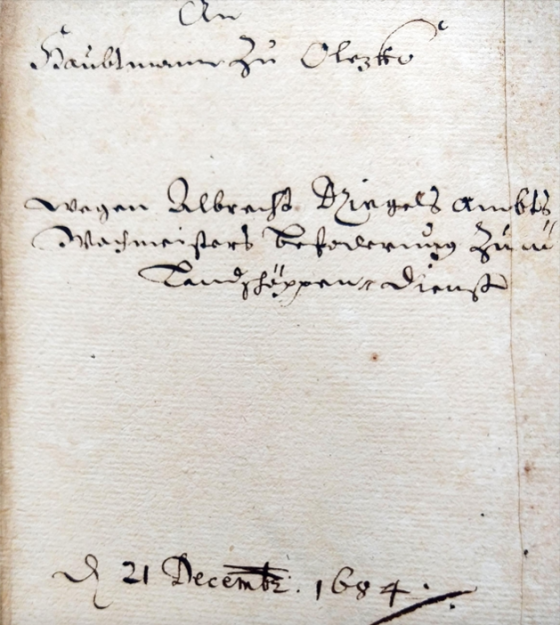 An
Haubtmann Zu Olezko
wegen Albrecht Ziegels Ambts
Wachmeisters befoderung Zum
Landschöppen dienst
D 21 Decembr. 1684.